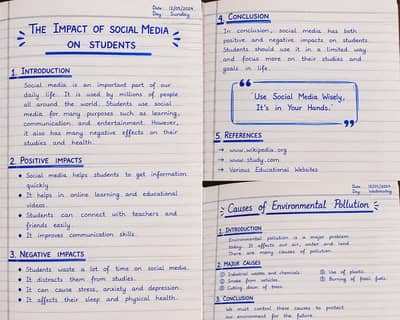 Date: 12/05/2024
Day: Sunday
THE IMPACT OF SOCIAL MEDIA
ON STUDENTS
1. INTRODUCTION
Social media is an important part of our
daily life. It is used by millions of people
all around the world. Students use social
media for many purposes such as learning,
communication and entertainment. However,
it also has many negative effects on their
studies and health.
2. POSITIVE IMPACTS
• Social media helps students to get information
quickly.
• It helps in online learning and educational
videos.
• Students can connect with teachers and
friends easily.
• It improves communication skills.
3. NEGATIVE IMPACTS
• Students waste a lot of time on social media.
• It distracts them from studies.
• It can cause stress, anxiety and depression.
• It affects their sleep and physical health.
4. CONCLUSION
In conclusion, social media has both
positive and negative impacts on students.
Students should use it in a limited way
and focus more on their studies and
goals in life.
"Use Social Media Wisely,
It's in Your Hands."
5. REFERENCES
→ www.wikipedia.org
→ www.study.com
→ Various Educational Websites
Day: Wednesday
Causes of Environmental Pollution
1. INTRODUCTION
Environmental pollution is a major problem
today. It affects our air, water and land.
There are many causes of pollution.
2. MAJOR CAUSES
① Industrial wastes and chemicals.
② Smoke from vehicles.
③ Cutting down of trees.
Use of plastic.
Burning of fossil fuels.
3. CONCLUSION
We must control these causes to protect
our environment for the future.